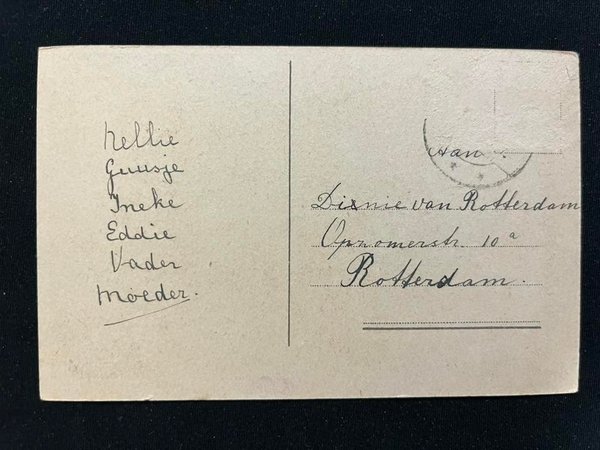 Nellie
Guusje
Ineke
Eddie
Vader
Moeder.
Aan
Disnie van Rotterdam
Opzomerstr. 10a
Rotterdam.